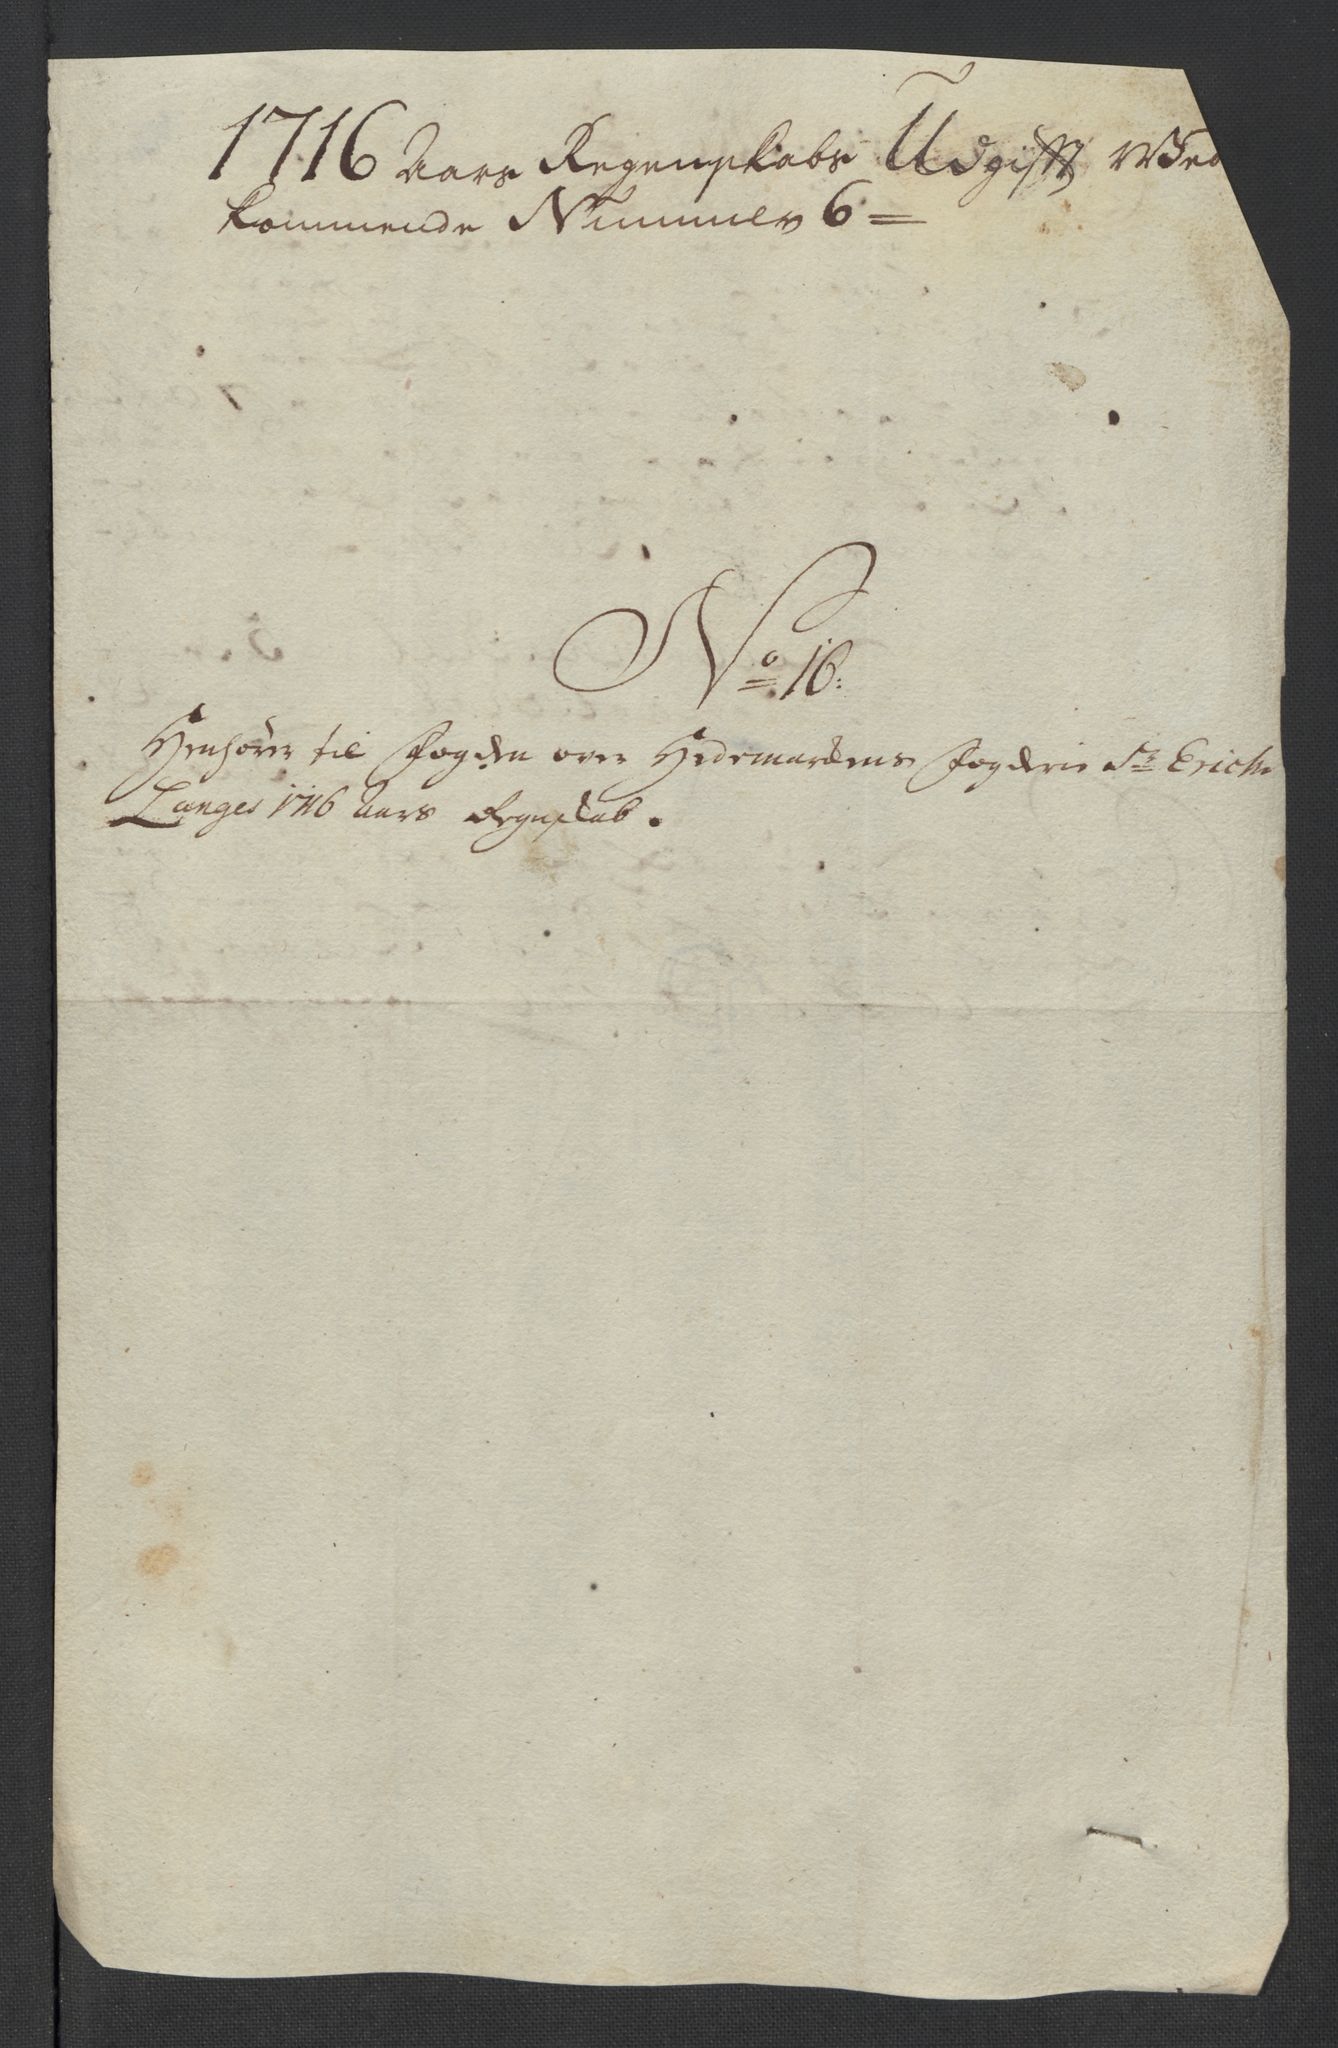 1716 Aars Regenskabs Udgifft Ved
kommende Nummer 6 =
No 16:
Henhører til Fogden over Hedemarkens Fogderie Sr Erich
Langes 1716 Aars Regnskab.